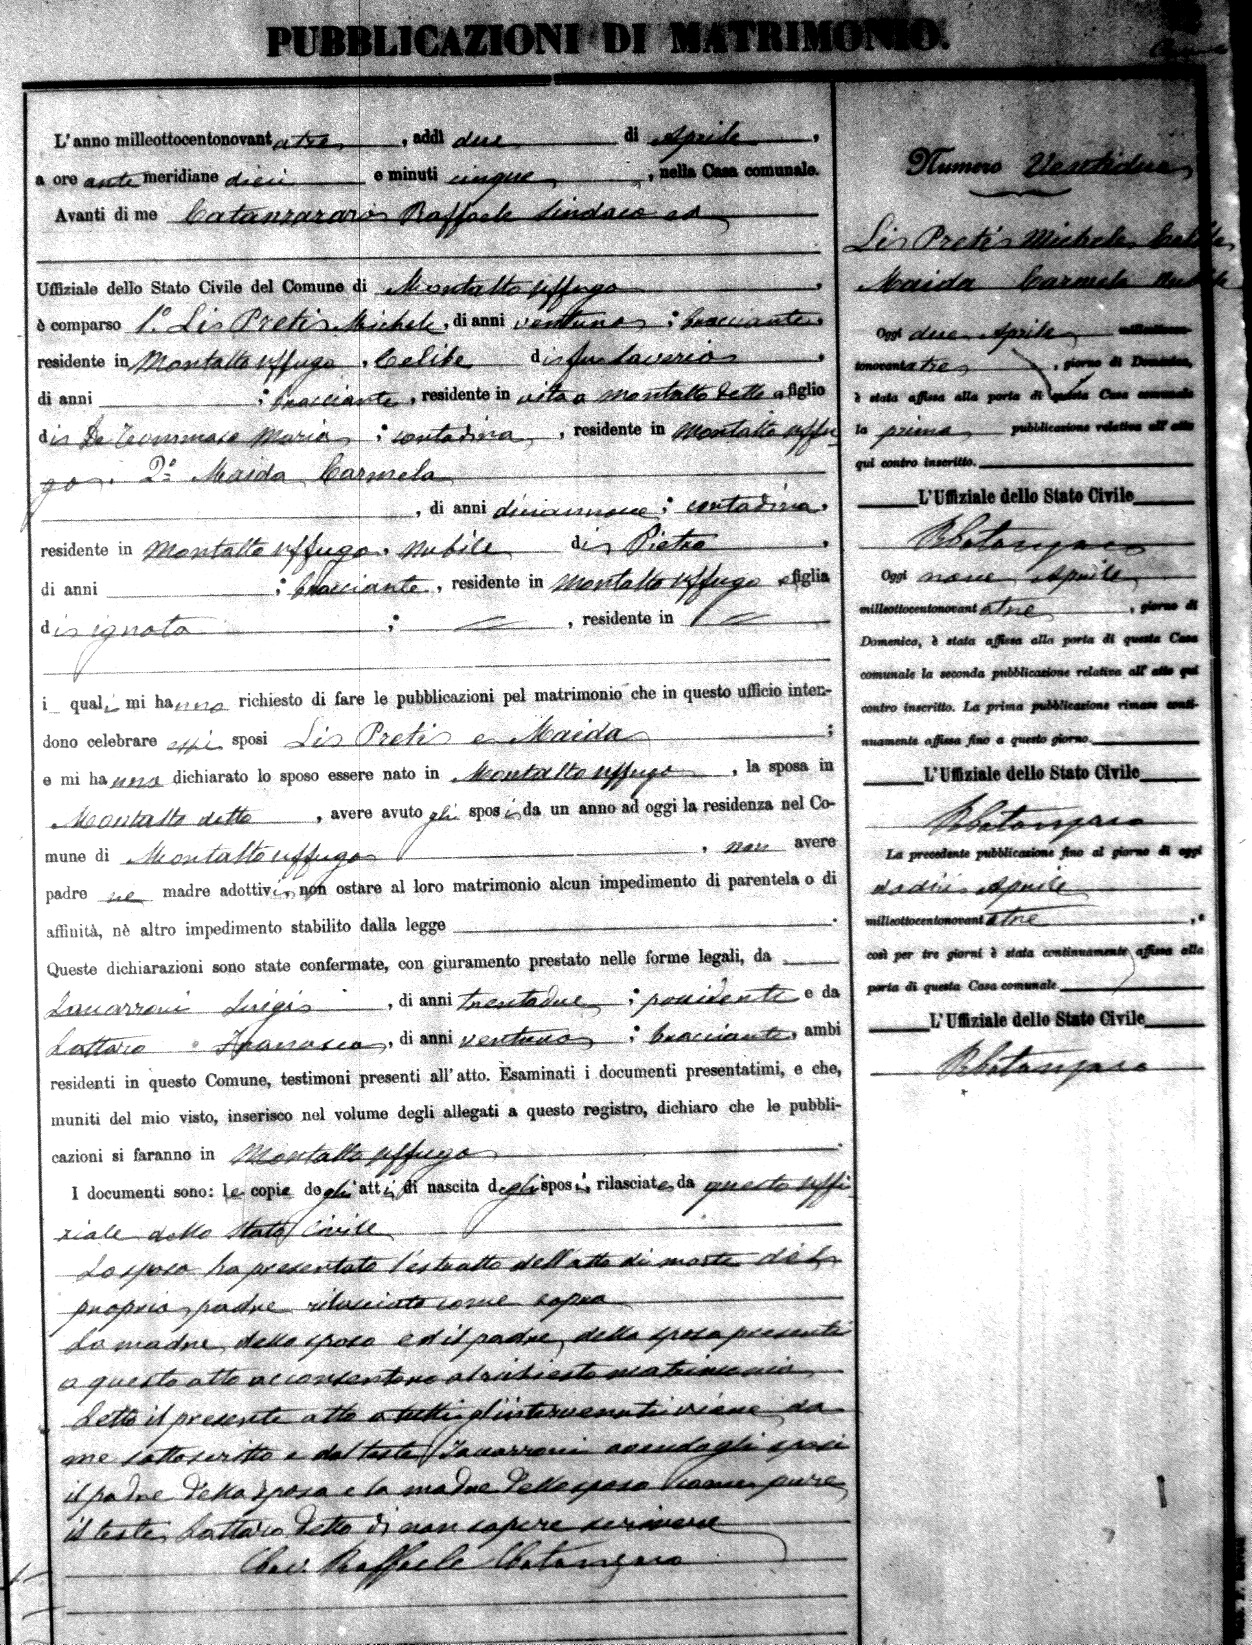 PUBBLICAZIONI DI MATRIMONIO.
L'anno milleottocentonovantatre, addì due di Aprile,
a ore antemeridiane dieci e minuti cinque, nella Casa comunale.
Avanti di me Catanzaro Raffaele Sindaco ed
Uffiziale dello Stato Civile del Comune di Montalto Uffugo,
è comparso 1.º Lis Preti Michele, di anni ventuno; bracciante,
residente in Montalto Uffugo, Celibe di fu Saverio,
di anni ; bracciante, residente in vita a Montalto detto e figlio
di De Tommaso Maria; contadina, residente in Montalto Uffu
go. 2.º Maida Carmela
, di anni diciannove; contadina,
residente in Montalto Uffugo, nubile di Pietro,
di anni ; bracciante, residente in Montalto Uffugo e figlia
di ignota ; , residente in
i quali mi hanno richiesto di fare le pubblicazioni pel matrimonio che in questo ufficio inten-
dono celebrare essi sposi Lis Preti e Maida;
e mi hanno dichiarato lo sposo essere nato in Montalto Uffugo, la sposa in
Montalto detto, avere avuto gli sposi da un anno ad oggi la residenza nel Co-
mune di Montalto Uffugo, non avere
padre ne madre adottivi, non ostare al loro matrimonio alcun impedimento di parentela o di
affinità, nè altro impedimento stabilito dalla legge .
Queste dichiarazioni sono state confermate, con giuramento prestato nelle forme legali, da
Luigi, di anni trentadue; possidente e da
Lattaro Francesco, di anni ventuno; bracciante, ambi
residenti in questo Comune, testimoni presenti all'atto. Esaminati i documenti presentatimi, e che,
muniti del mio visto, inserisco nel volume degli allegati a questo registro, dichiaro che le pubbli-
cazioni si faranno in Montalto Uffugo.
I documenti sono: le copie degli atti di nascita degli sposi, rilasciate da questo Uffi
ziale dello Stato Civile
Lo sposo ha presentato l'estratto dell'atto di morte del
proprio padre rilasciato come sopra
La madre dello sposo ed il padre della sposa presenti
a questo atto acconsentono al richiesto matrimonio
Letto il presente atto a tutti gl'intervenuti viene da
me sottoscritto e dal teste avendo gli sposi
il padre della sposa e la madre dello sposo come pure
il teste Lattaro detto di non sapere scrivere
Cav. Raffaele Catanzaro
Numero Ventidue
Lis Preti Michele Celibe
Maida Carmela Nubile
Oggi due Aprile milleottocen-
tonovantatre, giorno di Domenica,
è stata affissa alla porta di questa Casa comunale
la prima pubblicazione relativa all'atto
qui contro inscritto.
L'Uffiziale dello Stato Civile
R Catanzaro
Oggi nove Aprile
milleottocentonovantatre, giorno di
Domenica, è stata affissa alla porta di questa Casa
comunale la seconda pubblicazione relativa all'atto qui
contro inscritto. La prima pubblicazione rimase conti-
nuamente affissa fino a questo giorno.
L'Uffiziale dello Stato Civile
R Catanzaro
La precedente pubblicazione fino al giorno di oggi
dodici Aprile
milleottocentonovantatre, e
così per tre giorni è stata continuamente affissa alla
porta di questa Casa comunale
L'Uffiziale dello Stato Civile
R Catanzaro